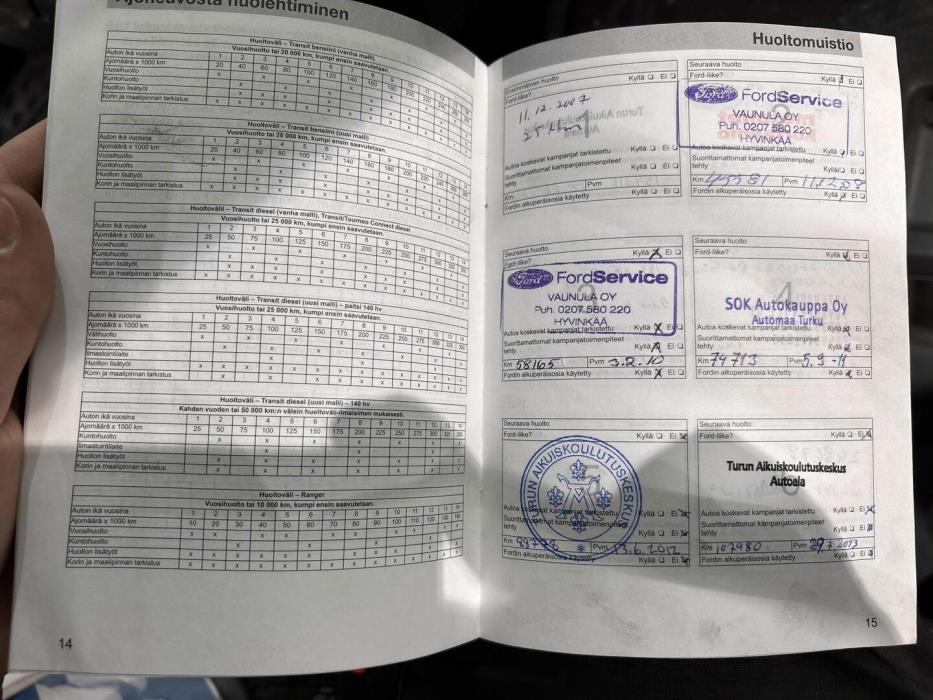 Ajoneuvosta huolehtiminen
Huoltoväli – Transit bensiini (vanha malli)
Vuosihuolto tai 20 000 km, kumpi ensin saavutetaan.
Auton ikä vuosina 1 2 3 4 5 6 7 8 9 10
Ajomäärä x 1000 km 20 40 60 80 100 120 140 160 180 200
Vuosihuolto
Kuntohuolto
Huollon lisätyöt
Korin ja maalipinnan tarkistus
Huoltoväli – Transit bensiini (uusi malli)
Vuosihuolto tai 20 000 km, kumpi ensin saavutetaan.
Auton ikä vuosina
Ajomäärä x 1000 km 20 40 60 80 100 120 140 160 180 200
Vuosihuolto
Kuntohuolto
Huollon lisätyöt
Korin ja maalipinnan tarkistus
Huoltovälit – Transit diesel (vanha malli), Transit/Tourneo Connect diesel
Vuosihuolto tai 25 000 km, kumpi ensin saavutetaan.
Auton ikä vuosina 1 2 3 4 5 6 7 8 9 10 11 12
Ajomäärä x 1000 km 25 50 75 100 125 150 175 200 225 250 275 300
Vuosihuolto
Kuntohuolto
Huollon lisätyöt
Korin ja maalipinnan tarkistus
Huoltoväli – Transit diesel (uusi malli) – paitsi 140 hv
Vuosihuolto tai 25 000 km, kumpi ensin saavutetaan.
Auton ikä vuosina 1 2 3 4 5 6 7 8 9 10 11 12
Ajomäärä x 1000 km 25 50 75 100 125 150 175 200 225 250 275 300
Välihuolto
Kuntohuolto
Ilmastointilaite
Huollon lisätyöt
Korin ja maalipinnan tarkistus
Huoltoväli – Transit diesel (uusi malli) – 140 hv
Kahden vuoden tai 50 000 km:n välein huoltoväli-ilmaisimen mukaisesti.
Auton ikä vuosina 1 2 3 4 5 6 7 8 9 10 11 12 13 14
Ajomäärä x 1000 km 25 50 75 100 125 150 175 200 225 250 275 300
Kuntohuolto
Ilmastointilaite
Huollon lisätyöt
Korin ja maalipinnan tarkistus
Huoltoväli – Ranger
Vuosihuolto tai 10 000 km, kumpi ensin saavutetaan.
Auton ikä vuosina 1 2 3 4 5 6 7 8 9 10 11 12 13 14
Ajomäärä x 1000 km 10 20 30 40 50 60 70 80 90 100 110 120
Vuosihuolto
Kuntohuolto
Huollon lisätyöt
Korin ja maalipinnan tarkistus
14
Huoltomuistio
Ensimmäinen huolto
Ford-liike? Kyllä Ei
11.12.2007
Autoa koskevat kampanjat tarkistettu Kyllä Ei
Suorittamattomat kampanjatoimenpiteet
tehty Kyllä Ei
Km Pvm
Fordin alkuperäisosia käytetty Kyllä Ei
Seuraava huolto
Ford-liike? Kyllä Ei
Ford FordService
VAUNULA OY
Puh. 0207 580 220
HYVINKÄÄ
Autoa koskevat kampanjat tarkistettu Kyllä Ei
Suorittamattomat kampanjatoimenpiteet
tehty Kyllä Ei
Km Pvm
Fordin alkuperäisosia käytetty Kyllä Ei
Seuraava huolto
Ford-liike? Kyllä Ei
Ford FordService
VAUNULA OY
Puh. 0207 580 220
HYVINKÄÄ
Autoa koskevat kampanjat tarkistettu Kyllä Ei
Suorittamattomat kampanjatoimenpiteet
tehty Kyllä Ei
Km 58165 Pvm 3.2.10
Fordin alkuperäisosia käytetty Kyllä Ei
Seuraava huolto
Ford-liike? Kyllä Ei
4
SOK Autokauppa Oy
Automaa Turku
Autoa koskevat kampanjat tarkistettu Kyllä Ei
Suorittamattomat kampanjatoimenpiteet
tehty Kyllä Ei
Km 74713 Pvm 5.9-11
Fordin alkuperäisosia käytetty Kyllä Ei
Seuraava huolto
Ford-liike? Kyllä Ei
TURUN AIKUISKOULUTUSKESKUS
Autoa koskevat kampanjat tarkistettu Kyllä Ei
Suorittamattomat kampanjatoimenpiteet
tehty Kyllä Ei
Km Pvm 13.6.2012
Fordin alkuperäisosia käytetty Kyllä Ei
Seuraava huolto
Ford-liike? Kyllä Ei
Turun Aikuiskoulutuskeskus
Autoala
Autoa koskevat kampanjat tarkistettu Kyllä Ei
Suorittamattomat kampanjatoimenpiteet
tehty Kyllä Ei
Km 107980 Pvm
Fordin alkuperäisosia käytetty Kyllä Ei
15